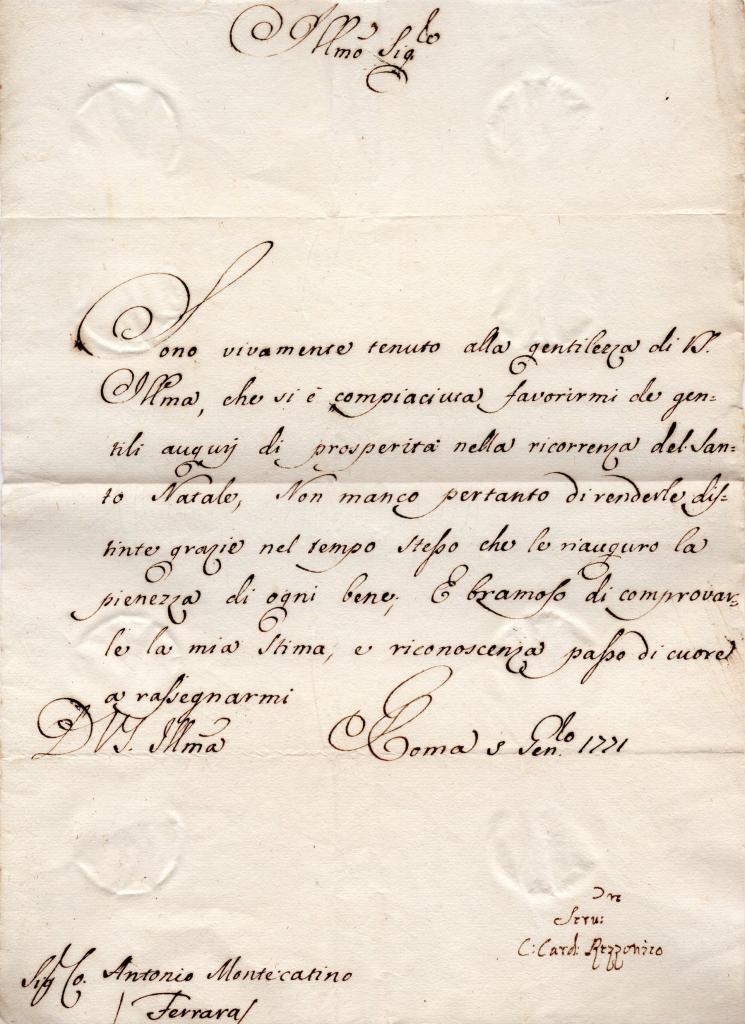 Illmo Sig.re
Sono vivamente tenuto alla gentilezza di V.S.
Illma, che si è compiaciuta favorirmi de gen=
tili augurj di prosperità nella ricorrenza del San=
to Natale, Non manco pertanto di renderle dis=
tinte grazie nel tempo stesso che le riauguro la
pienezza di ogni bene; E bramoso di comprovar=
le la mia stima, e riconoscenza passo di cuore
a rassegnarmi
D V.S. Illma
Roma 5 Gen. 1771
Serv:
C: Card: Rezzonico
Sig. Co. Antonio Montecatino
/ Ferrara /